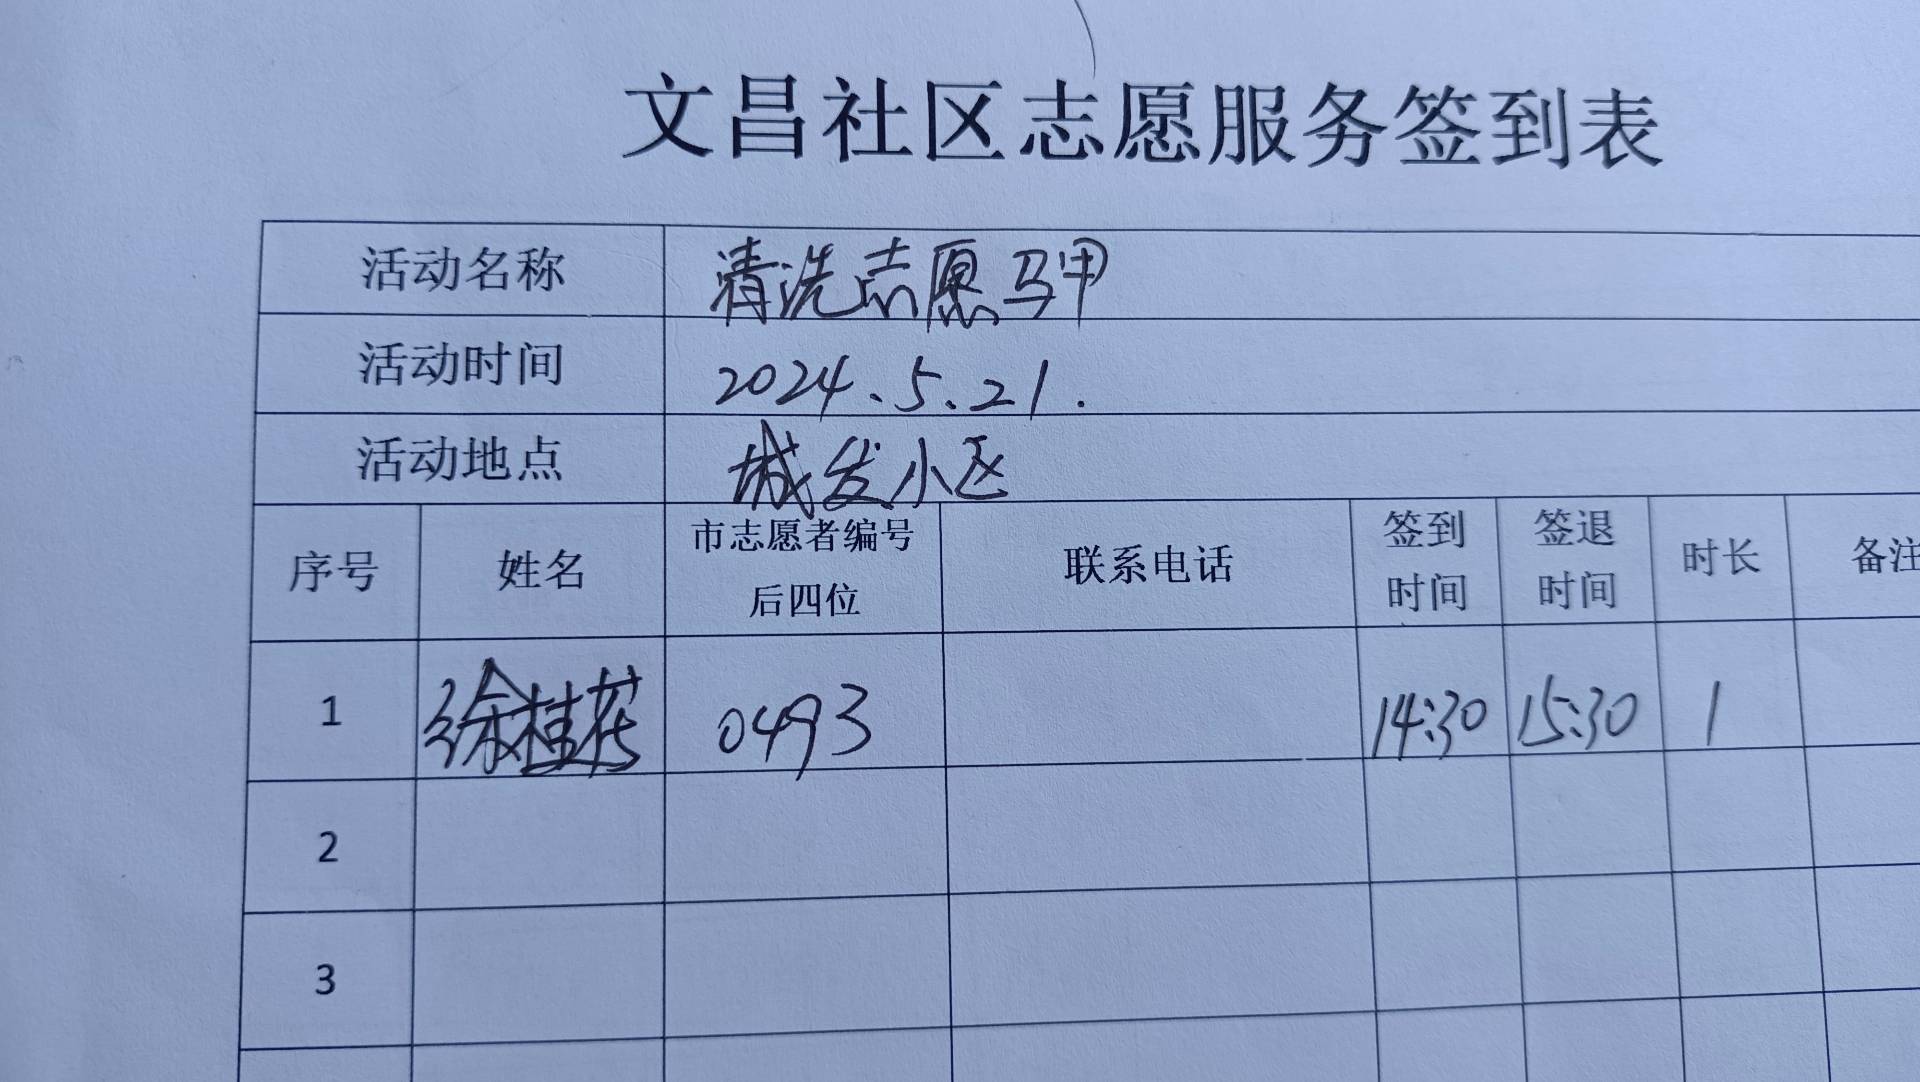 文昌社区志愿服务签到表
活动名称 清洗志愿马甲
活动时间 2024.5.21.
活动地点 城发小区
序号 姓名 市志愿者编号后四位 联系电话 签到时间 签退时间 时长 备注
1 徐桂花 0493 14:30 15:30 1
2
3